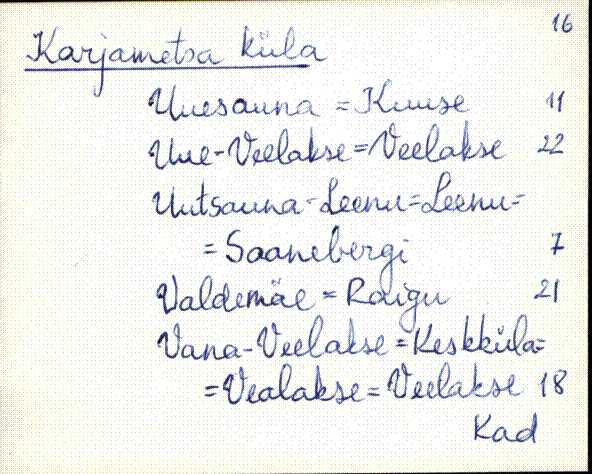 16
Karjametsa küla
Uuesauna = Kuuse 11
Uue-Veelakse = Veelakse 22
Uutsauna-Leenu = Leenu =
= Saanebergi 7
Valdemäe = Raigu 21
Vana-Veelakse = Keskküla =
= Vealakse = Veelakse 18
Kad